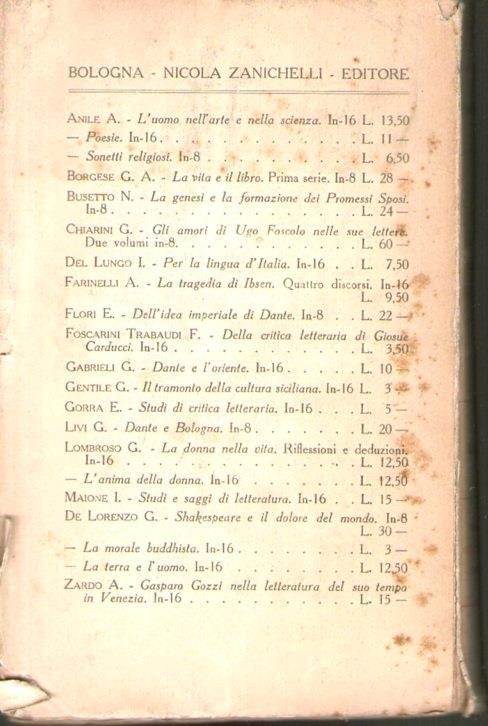 BOLOGNA - NICOLA ZANICHELLI - EDITORE
ANILE A. - L'uomo nell'arte e nella scienza. In-16 L. 13,50
— Poesie. In-16. . . . . . . . . . . . . . L. 11 —
— Sonetti religiosi. In-8 . . . . . . . . . . L. 6,50
BORGESE G. A. - La vita e il libro. Prima serie. In-8 L. 28 —
BUSETTO N. - La genesi e la formazione dei Promessi Sposi.
In-8 . . . . . . . . . . . . . . . . . L. 24 —
CHIARINI G. - Gli amori di Ugo Foscolo nelle sue lettere.
Due volumi in-8. . . . . . . . . . . . . L. 60 —
DEL LUNGO I. - Per la lingua d'Italia. In-16 . . L. 7,50
FARINELLI A. - La tragedia di Ibsen. Quattro discorsi. In-16
L. 9,50
FLORI E. - Dell'idea imperiale di Dante. In-8 . . L. 22 —
FOSCARINI TRABAUDI F. - Della critica letteraria di Giosue
Carducci. In-16 . . . . . . . . . . . . . L. 3,50
GABRIELI G. - Dante e l'oriente. In-16 . . . . . L. 10 —
GENTILE G. - Il tramonto della cultura siciliana. In-16 L. 3 —
GORRA E. - Studi di critica letteraria. In-16 . . . L. 5 —
LIVI G. - Dante e Bologna. In-8 . . . . . . . . L. 20 —
LOMBROSO G. - La donna nella vita. Riflessioni e deduzioni.
In-16 . . . . . . . . . . . . . . . . . L. 12,50
— L'anima della donna. In-16 . . . . . . . . L. 12,50
MAIONE I. - Studi e saggi di letteratura. In-16 . . L. 15 —
DE LORENZO G. - Shakespeare e il dolore del mondo. In-8
L. 30 —
— La morale buddhista. In-16 . . . . . . . . L. 3 —
— La terra e l'uomo. In-16 . . . . . . . . . L. 12,50
ZARDO A. - Gasparo Gozzi nella letteratura del suo tempo
in Venezia. In-16 . . . . . . . . . . . . L. 15 —